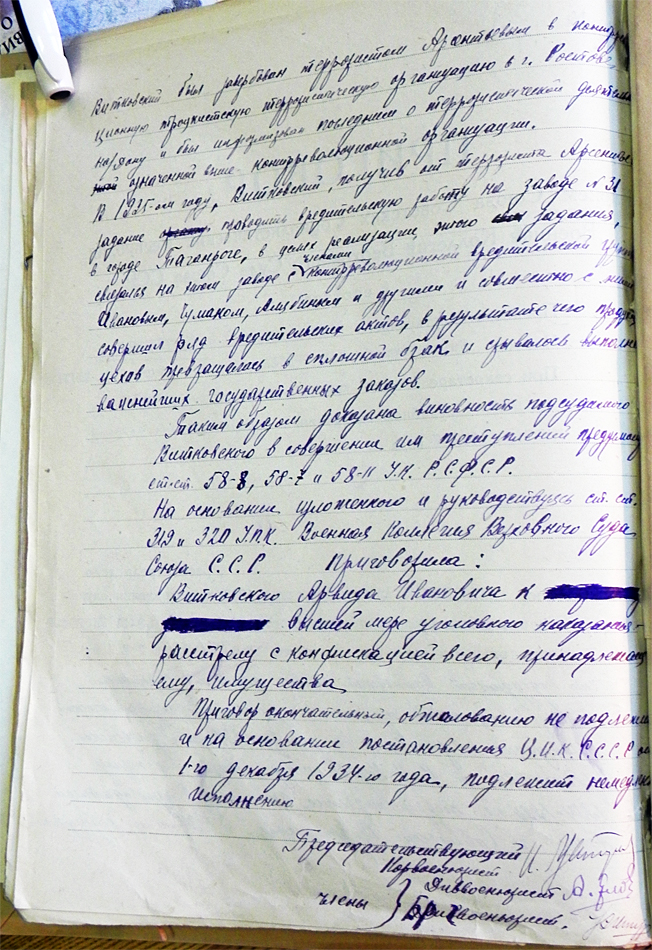 Витковский был завербован террористом Арентьевым в контррев
ционную троцкистскую террористическую организацию в г. Ростове
на Дону и был информирован последним о террористической деятельн
означенной выше контрреволюционной организации.
В 1935-ом году, Витковский, получив от террориста Арсентье
задание проводить вредительскую работу на заводе N 31
в городе Таганроге, в целях реализации этого задания,
связался на этом заводе с членами контрреволюционной вредительской группы
Ивановым, Чумаком, и другими и совместно с ними
совершил ряд вредительских актов, в результате чего продукц
цехов превращалась в сплошной брак и срывалось выполне
важнейших государственных заказов.
Таким образом доказана виновность подсудимого
Витковского в совершении им преступлений предусмот
ст.ст. 58-8, 58-7 и 58-11 У.К. Р.С.Ф.С.Р.
На основании изложенного и руководствуясь ст. ст.
319 и 320 У.П.К. Военная Коллегия Верховного Суда
Союза С.С.Р. Приговорила:
Витковского Арвида Ивановича к
высшей мере уголовного наказания-
расстрелу с конфискацией всего, принадлежащ
ему, имущества
Приговор окончательный, обжалованию не подлежи
и на основании постановления Ц.И.К. С.С.С.Р от
1-го декабря 1934-го года, подлежит немедлен
исполнению
Председательствующий
Корвоенюрист
Диввоенюрист
члены } Бригвоенюрист.